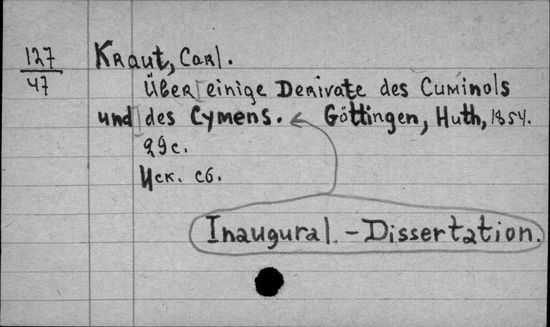 127
47
Kraut, Carl.
Über einige Derivate des Cuminols
und des Cymens. Göttingen, Huth, 1854.
29 с.
Иск. сб.
Inaugural.-Dissertation.